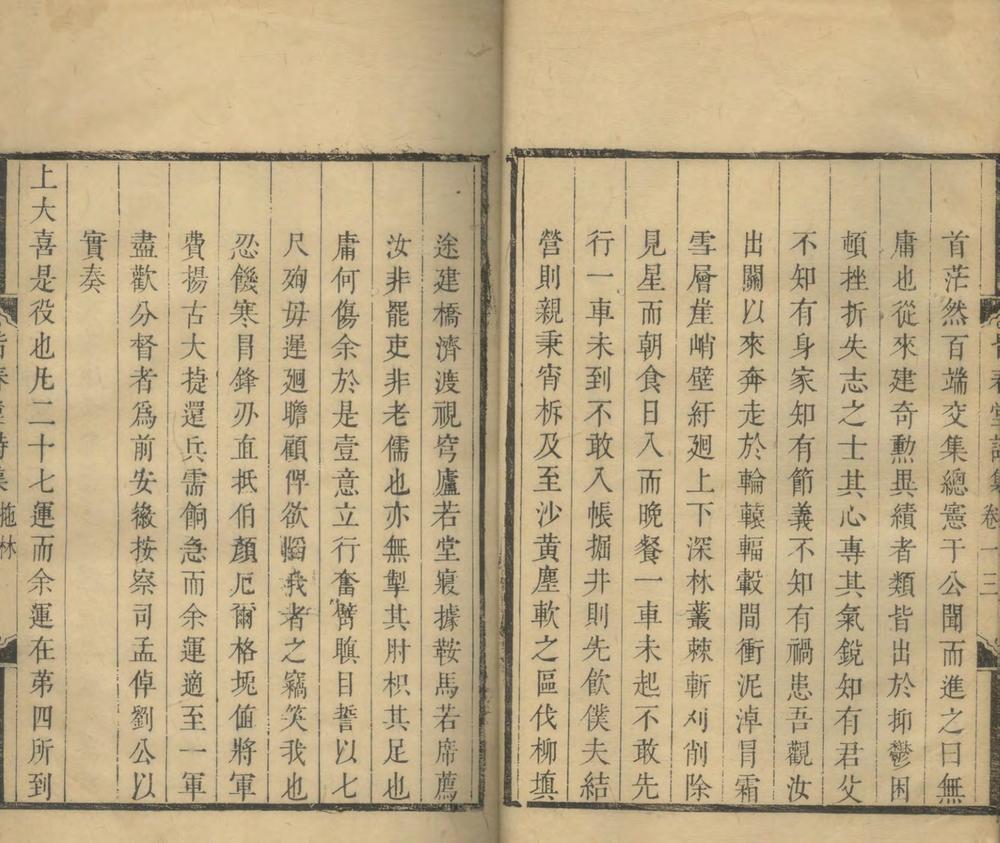 首茫然百端交集總憲于公聞而進之曰無
庸也從來建奇勲異績者類皆出於抑鬱困
頓挫折失志之士其心專其氣銳知有君父
不知有身家知有節義不知有禍患吾觀汝
出關以來奔走於輪轅輻轂間衝泥淖冒霜
雪層崖峭壁紆廻上下深林叢棘斬刈削除
見星而朝食日入而晚餐一車未起不敢先
行一車未到不敢入帳掘井則先飲僕夫結
營則親秉宵柝及至沙黄塵軟之區伐柳塡
途建橋濟渡視穹廬若堂寢據鞍馬若席薦
汝非罷吏非老儒也亦無掣其肘枳其足也
庸何傷余於是壹意立行奮臂瞋目誓以七
尺殉毋遲廻瞻顧俾欲慆我者之竊笑我也
忍饑寒冒鋒刃直抵伯顏厄爾格坭值將軍
費揚古大捷還兵需餉急而余運適至一軍
盡歡分督者爲前安徽按察司孟倬劉公以
實奏
上大喜是役也凡二十七運而余運在第四所到
春堂詩集
卷十三
春堂詩集
拖林